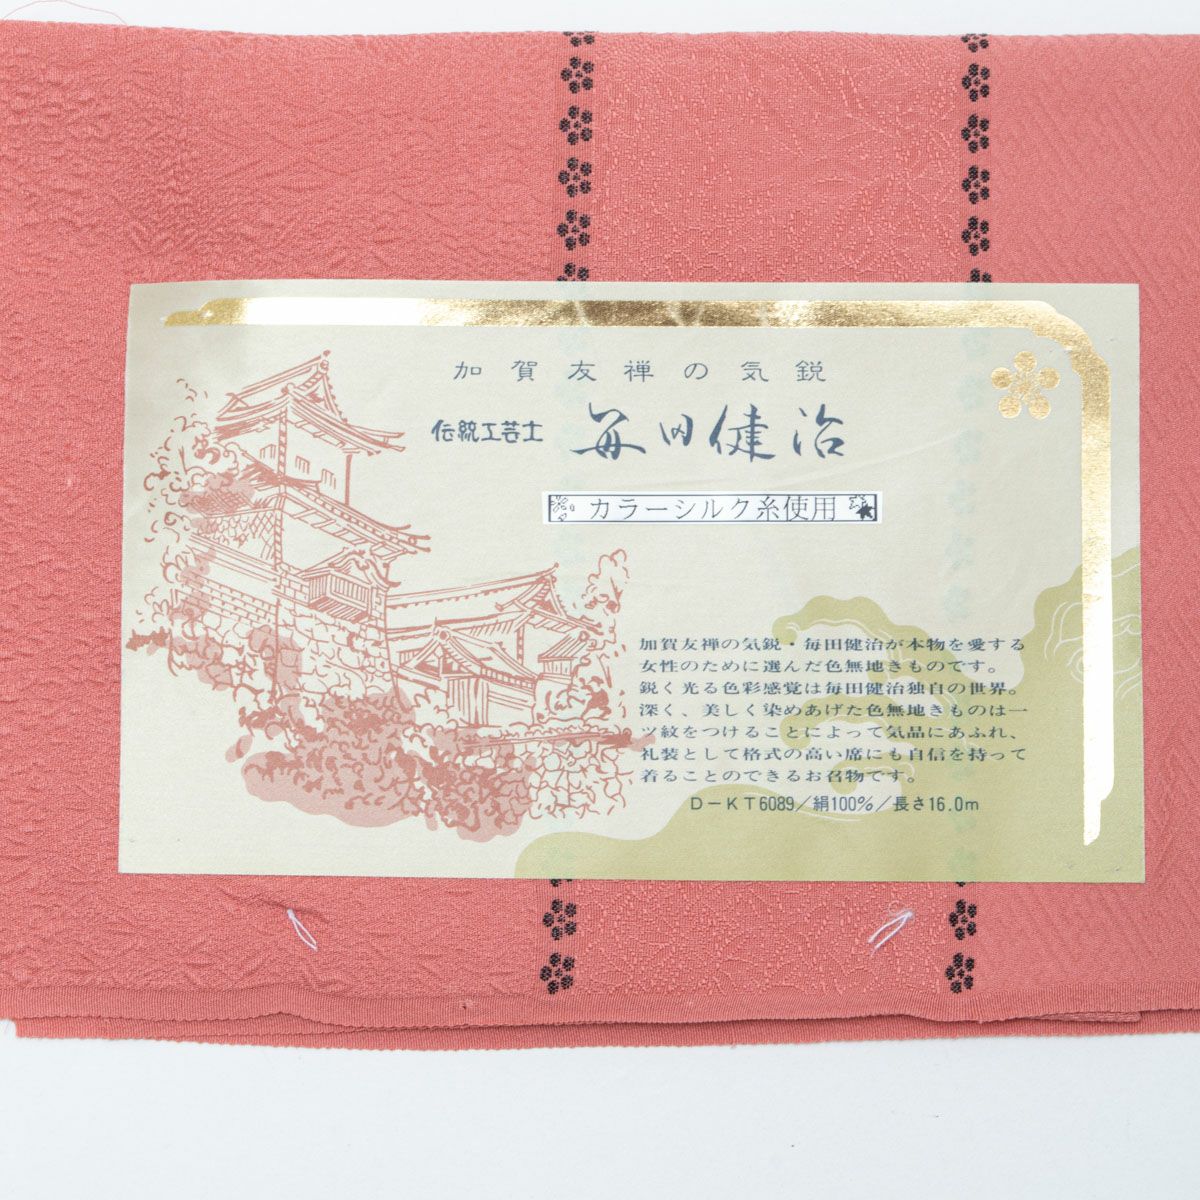 加賀友禅の気鋭
伝統工芸士 毎田健治
カラーシルク糸使用
加賀友禅の気鋭・毎田健治が本物を愛する
女性のために選んだ色無地きものです。
鋭く光る色彩感覚は毎田健治独自の世界。
深く、美しく染めあげた色無地きものは一
ツ紋をつけることによって気品にあふれ、
礼装として格式の高い席にも自信を持って
着ることのできるお召物です。
D－KT6089／絹100％／長さ16.0m